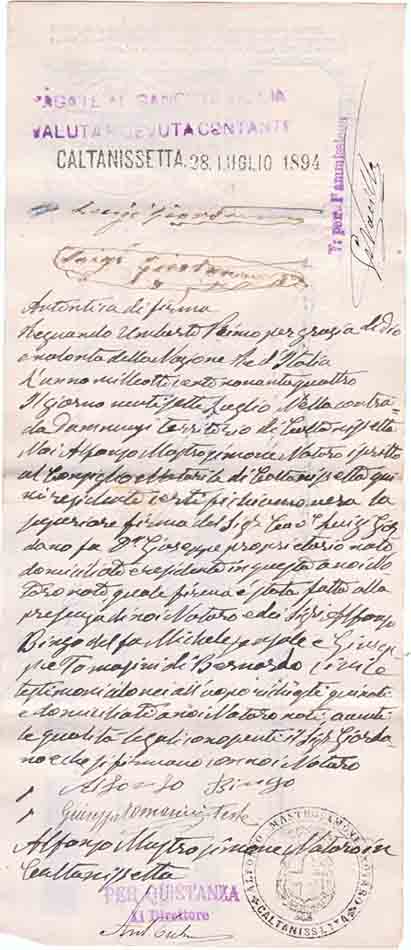 PAGATE AL BANCO DI SICILIA
VALUTA RICEVUTA CONTANTI
CALTANISSETTA, 28. LUGLIO 1894
Luigi Giordano
Luigi Giordano
Autentica di firma
Regnando Umberto Primo per grazia di Dio
e volontà della Nazione Re d'Italia
L'anno milleottocentonovantaquattro
Il giorno ventisette Luglio Nella contra
da territorio di Caltanissetta
Noi Alfonso Mastrosimone Notaro iscritto
al Consiglio Notarile di Caltanissetta qui
vi residente certifichiamo vera la
superiore firma del Sigr Cavre Luigi Gior
dano fu Dn Giuseppe proprietario nato
domiciliato e residente in questa a noi No
taro noto quale firma è stata fatta alla
presenza di noi Notaro e dei Sigri Alfonso
Binzo del fu Michele e Giusep
pe Tomasini di Bernardo civile
testimoni idonei all'uopo richiesti qui nati
e domiciliati a noi Notaro noti, aventi
le qualità legali il Sigr Giorda
no e che si firmano con noi Notaro
Alfonso Binzo
Giuseppe Tomasini teste
Alfonso Mastrosimone Notaro in
Caltanissetta
PER QUISTANZA
Il Direttore
ALFONSO MASTROSIMONE NOTARO
CALTANISSETTA